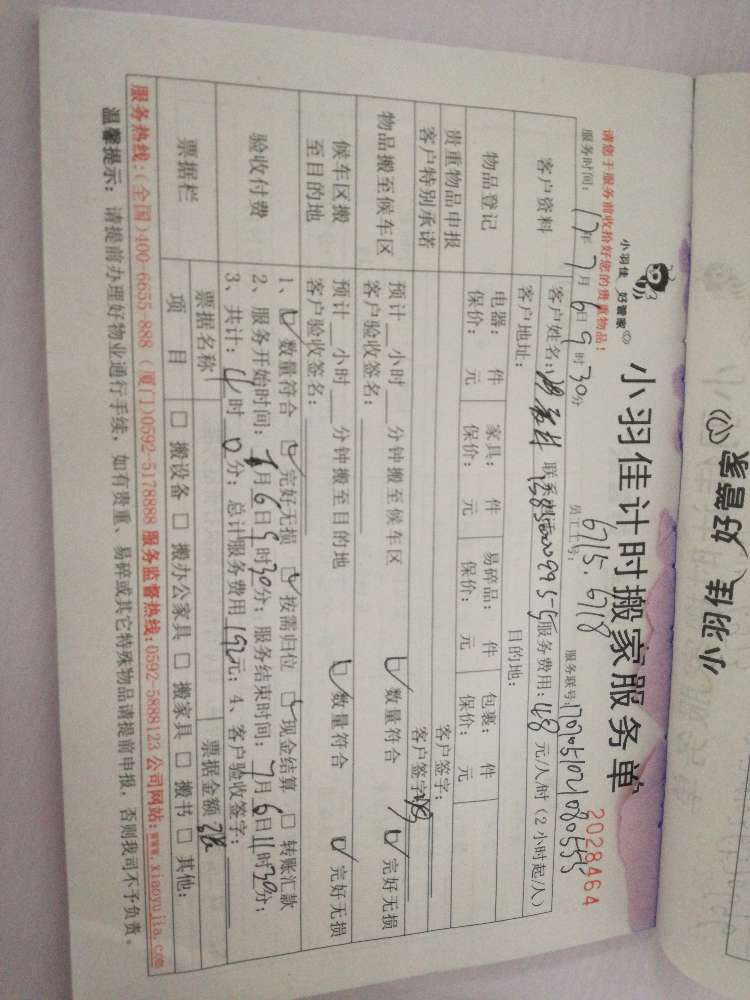 小羽佳 好管家
小羽佳 好管家
小羽佳计时搬家服务单
2028464
请您于服务前收拾好您的贵重物品!
服务时间: 17年 7月 6日 9时 30分 员工工号: 6715. 6718 服务联号:
客户资料
客户姓名: 联系电话: 服务费用: 48 元/人/时 (2小时起/人)
客户地址: 目的地:
物品登记
电器: 件 家具: 件 易碎品: 件 包裹: 件
保价: 元 保价: 元 保价: 元 保价: 元
贵重物品申报 客户签字:
客户特别承诺 客户签字:
物品搬至候车区
预计 小时 分钟搬至候车区 数量符合 完好无损
客户验收签名:
候车区搬至目的地
预计 小时 分钟搬至目的地 数量符合 完好无损
客户验收签名:
验收付费
1、 数量符合 完好无损 按需归位 现金结算 转账汇款
2、服务开始时间: 7月6日9时30分; 服务结束时间: 7月6日11时30分;
3、共计: 4时0分; 总计服务费用192元; 4、客户验收签字:
票据栏
票据名称 票据金额
项 目 搬设备 搬办公家具 搬家具 搬书 其他:
服务热线:(全国)400-6655-888 (厦门)0592-5178888 服务监督热线:0592-5888123 公司网站:www.xiaoyujia.com
温馨提示: 请提前办理好物业通行手续, 如有贵重、易碎或其它特殊物品请提前申报, 否则我司不予负责。